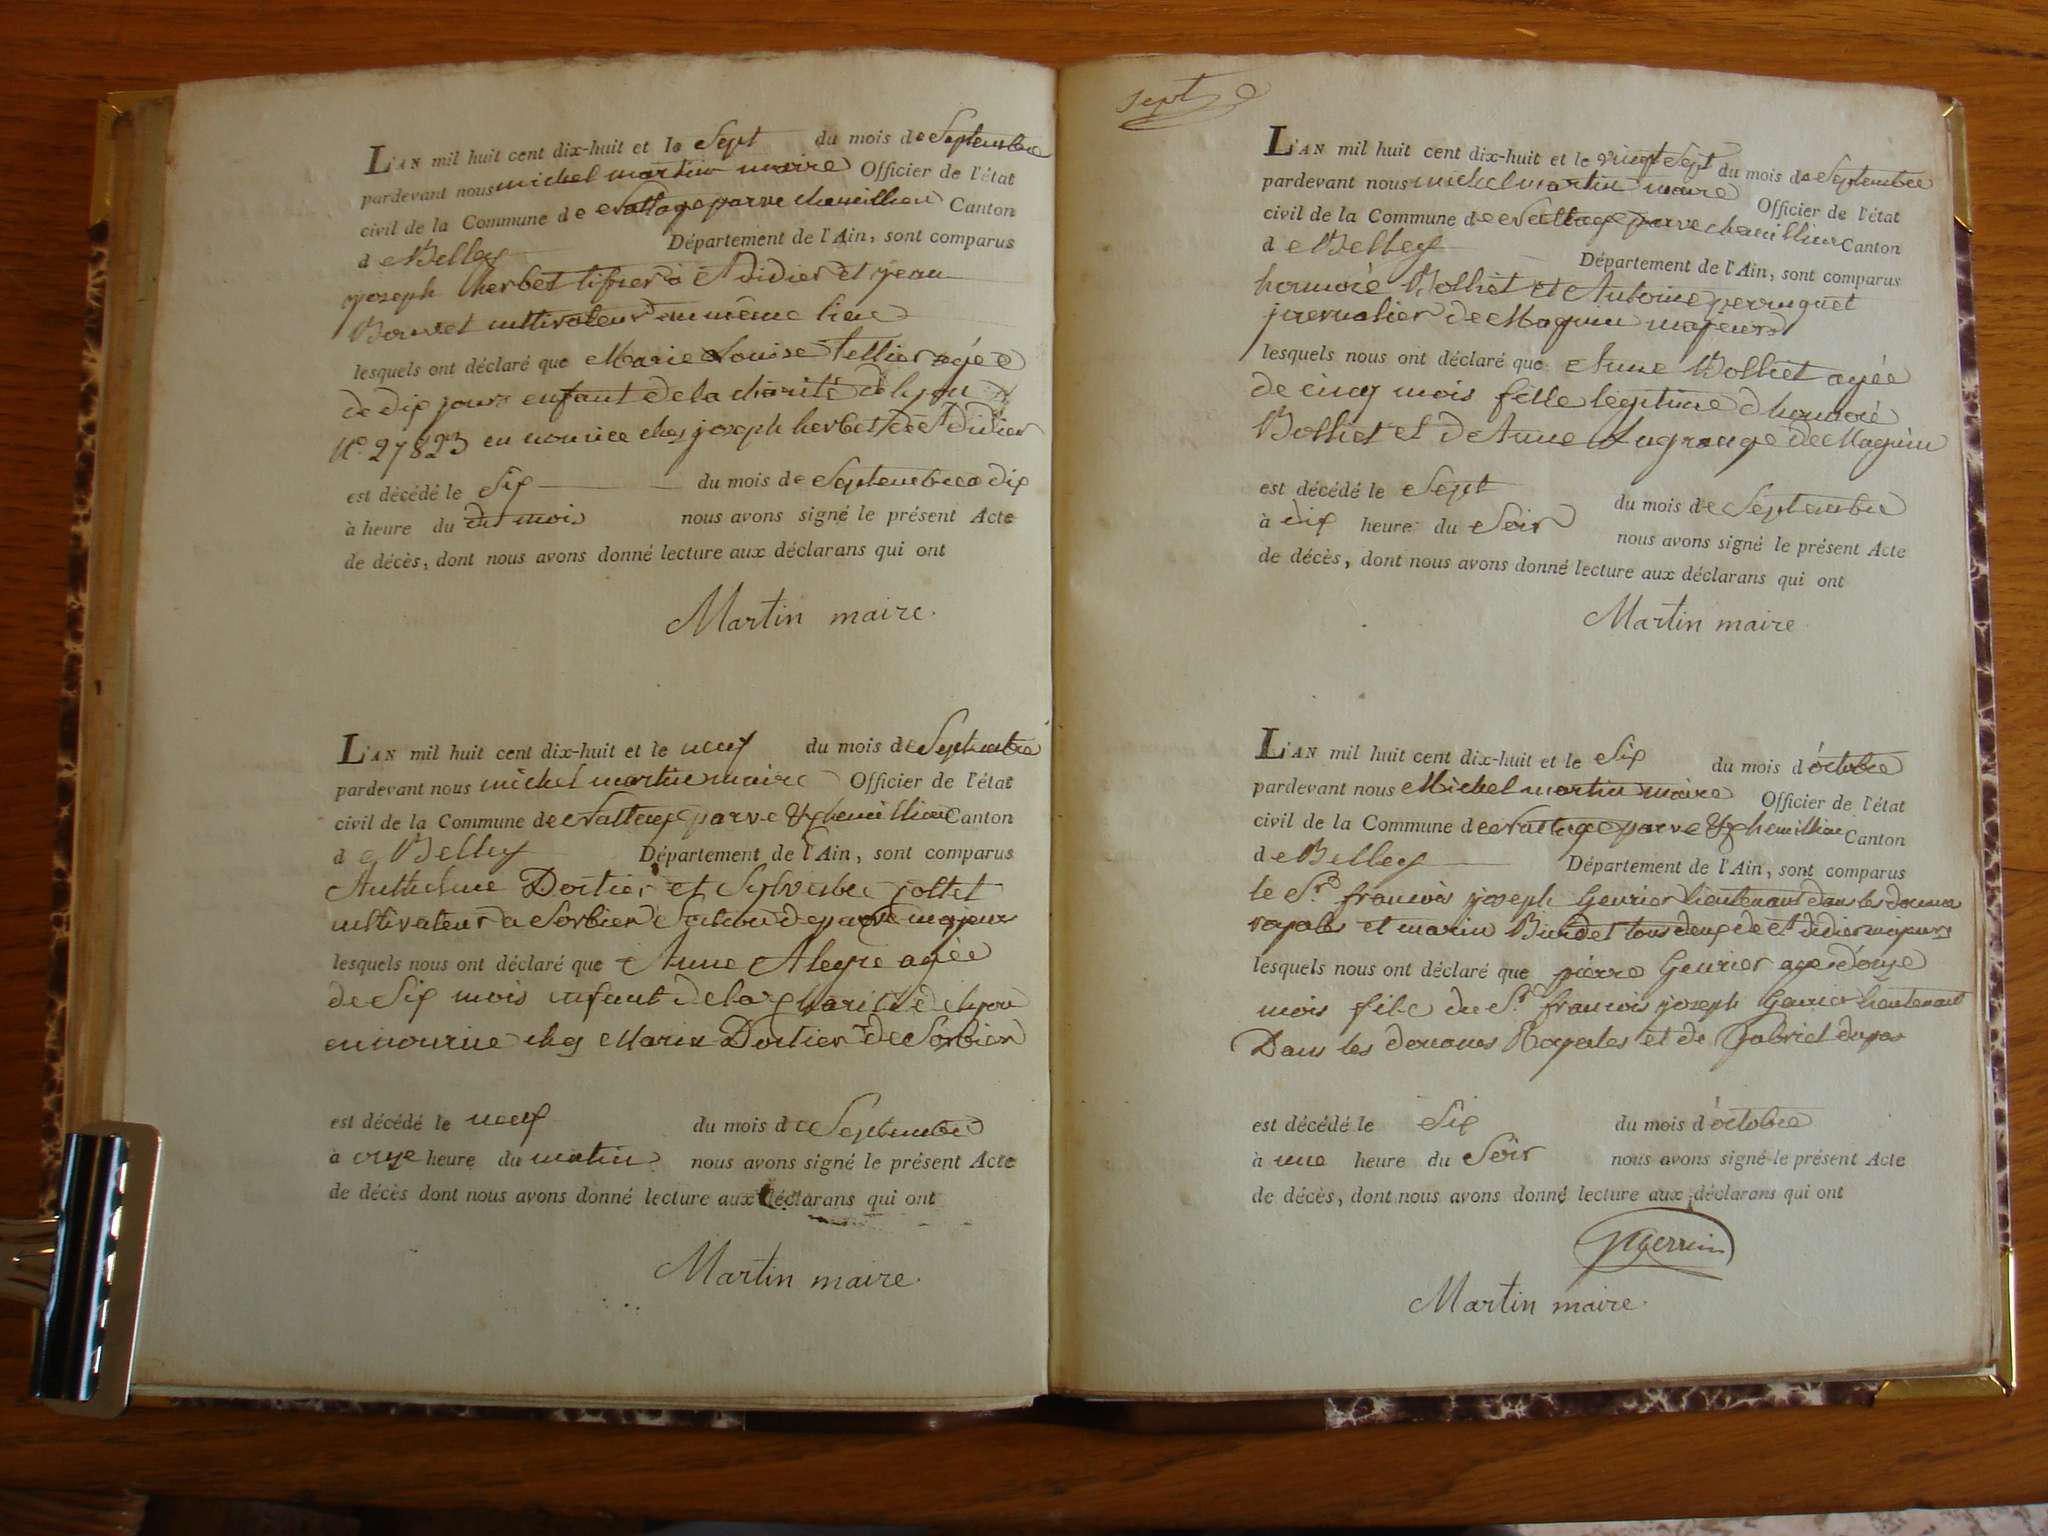 L'AN mil huit cent dix-huit et le Sept du mois de Septembre
pardevant nous michel martin maire Officier de l'état
civil de la Commune de parve Canton
de Belley Département de l'Ain, sont comparus
joseph herbet à St didier et jean
cultivateur au même lieu
lesquels ont déclaré que Marie Louise tellier agée
de dix jours enfant de la charité de lyon
N.o 27823 en nourice chez joseph herbet de St didier
est décédé le Six du mois de Septembre a dix
à heure du du mois nous avons signé le présent Acte
de décès, dont nous avons donné lecture aux déclarans qui ont
Martin maire.
L'AN mil huit cent dix-huit et le neuf du mois de Septembre
pardevant nous michel martin maire Officier de l'état
civil de la Commune de parve & Canton
de Belley Département de l'Ain, sont comparus
Anthelme Dortier et Sylvestre
cultivateur a Sorbier de parve majeurs
lesquels nous ont déclaré que Anne Alegre agée
de Six mois enfant de la charité de lyon
en nourice chez Marie Dortier de Sorbier
est décédé le neuf du mois de Septembre
à onze heure du matin nous avons signé le présent Acte
de décès dont nous avons donné lecture aux déclarans qui ont
Martin maire.
Sept
L'AN mil huit cent dix-huit et le vingt Sept du mois de Septembre
pardevant nous michel martin maire Officier de l'état
civil de la Commune de parve Canton
de Belley Département de l'Ain, sont comparus
honnoré Bolliet et Antoine perruquet
journalier de Magnin majeurs
lesquels nous ont déclaré que Anne Bolliet agée
de cinq mois fille legitime d honnoré
Bolliet et de Anne Lagrange de Magnin
est décédé le Sept du mois de Septembre
à dix heure du Soir nous avons signé le présent Acte
de décès, dont nous avons donné lecture aux déclarans qui ont
Martin maire
L'AN mil huit cent dix-huit et le Six du mois d'octobre
pardevant nous Michel martin maire Officier de l'état
civil de la Commune de parve & Canton
de Belley Département de l'Ain, sont comparus
le Sr. francois joseph Gevrier lieutenant dans les douanes
royales et marin Burdet tous deux de St didier majeurs
lesquels nous ont déclaré que pierre Gevrier age d'onze
mois fils du Sr. francois joseph Gevrier lieutenant
Dans les douanes Royales et de
est décédé le Six du mois d'octobre
à une heure du Soir nous avons signé le présent Acte
de décès, dont nous avons donné lecture aux déclarans qui ont
Martin maire.